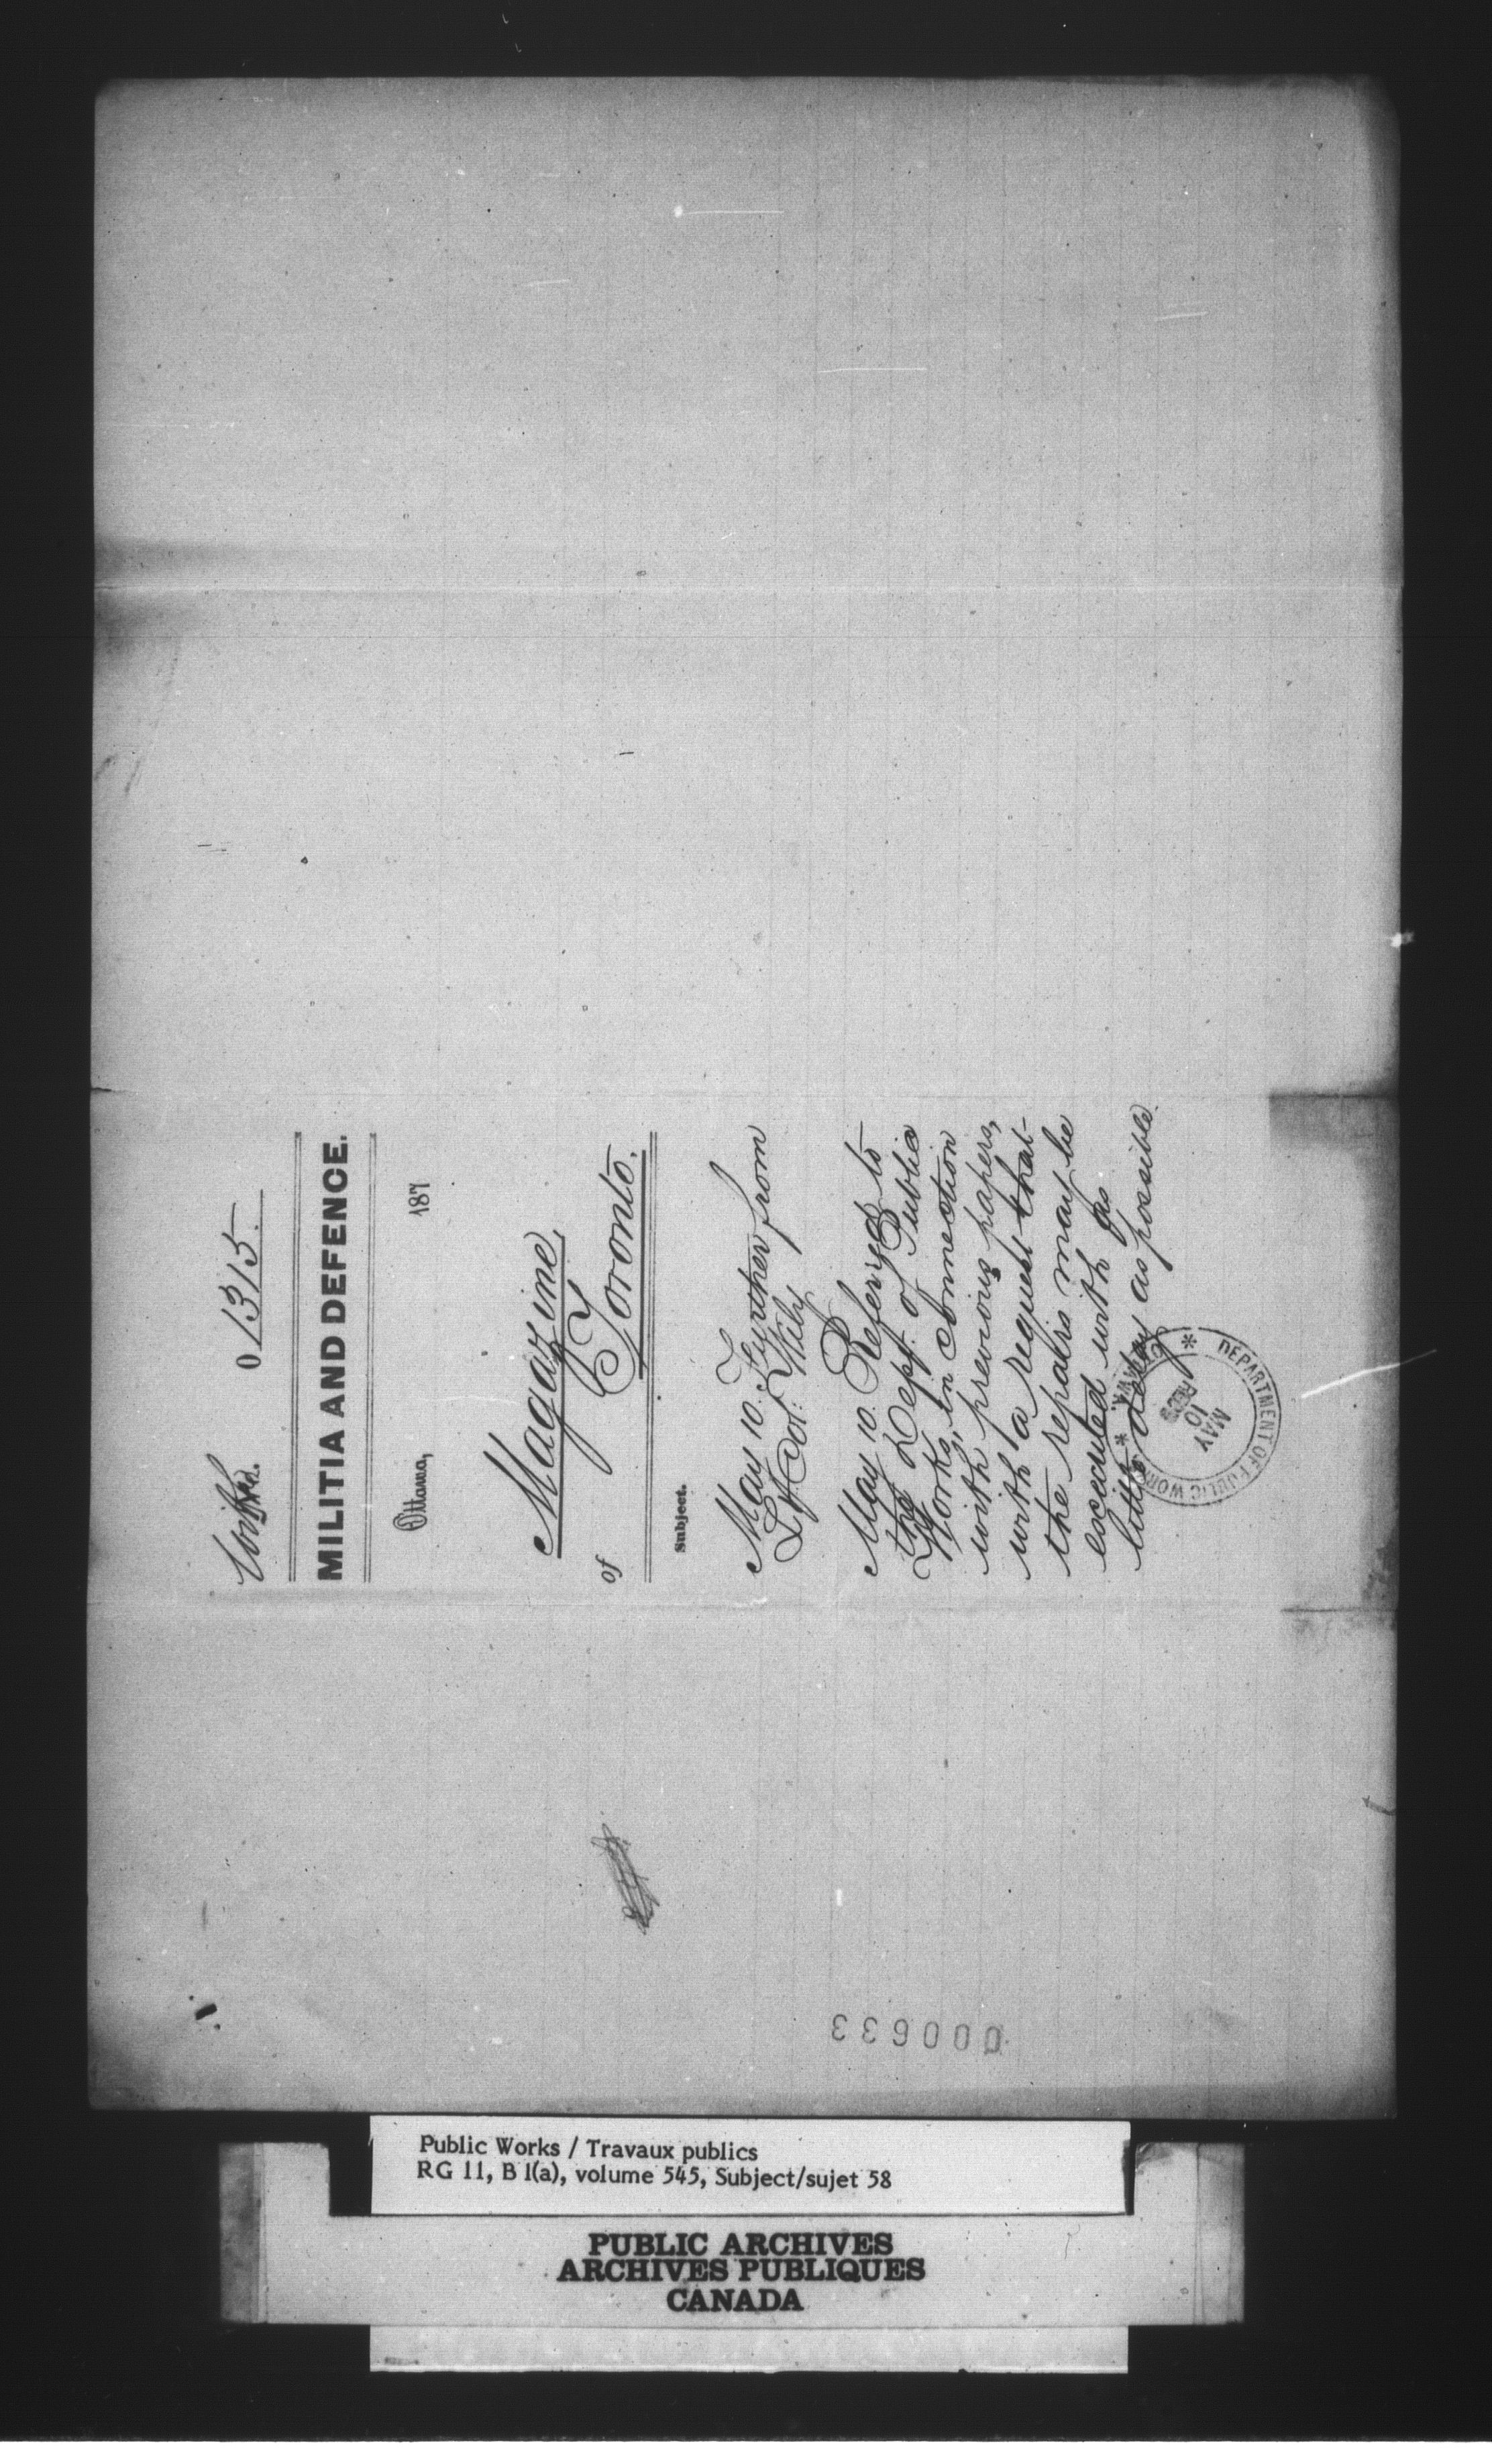 0 1315.
MILITIA AND DEFENCE.
Ottawa, 187
Magazine,
of Toronto.
Subject.
May 10. Further from
Lt Col: Wily
May 10. Referred to
the Dept. of Public
Works, in connection
with previous papers,
with a request that
the repairs may be
executed with as
little delay as possible.
DEPARTMENT OF PUBLIC WORKS * OTTAWA. *
MAY
10
REC'D
000633
Public Works / Travaux publics
RG 11, B 1(a), volume 545, Subject/sujet 58
PUBLIC ARCHIVES
ARCHIVES PUBLIQUES
CANADA